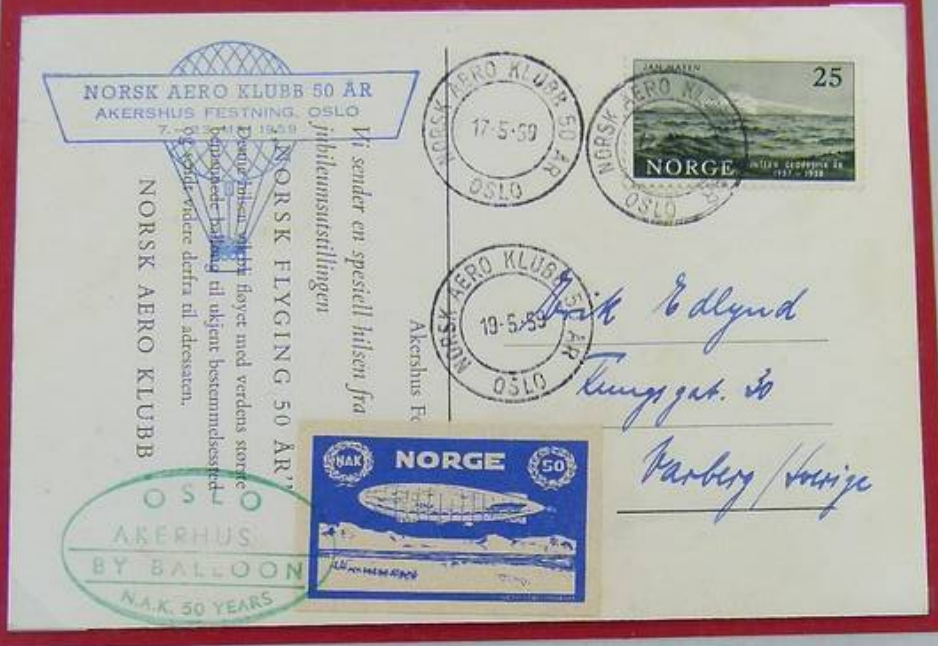 NORSK AERO KLUBB 50 ÅR
AKERSHUS FESTNING, OSLO
7.-23. MAI 1959
Vi sender en spesiell hilsen fra
jubileumsutstillingen
NORSK FLYGING 50 ÅR"
Denne hilsen vil bli fløyet med verdens største
bemannede ballong til ukjent bestemmelsessted
og sendt videre derfra til adressaten.
NORSK AERO KLUBB
Akershus
NORSK AERO KLUBB 50 ÅR
17-5-59
OSLO
NORSK AERO KLUBB 50 ÅR
OSLO
NORSK AERO KLUBB 50 ÅR
19-5-59
OSLO
JAN MAYEN
25
NORGE
INTERN. GEOFYSISK ÅR
1957-1958
Erik Edlund
Kungsgat. 30
Varberg / Sverige
NAK NORGE 50
OSLO
AKERHUS
BY BALLOON
N.A.K. 50 YEARS